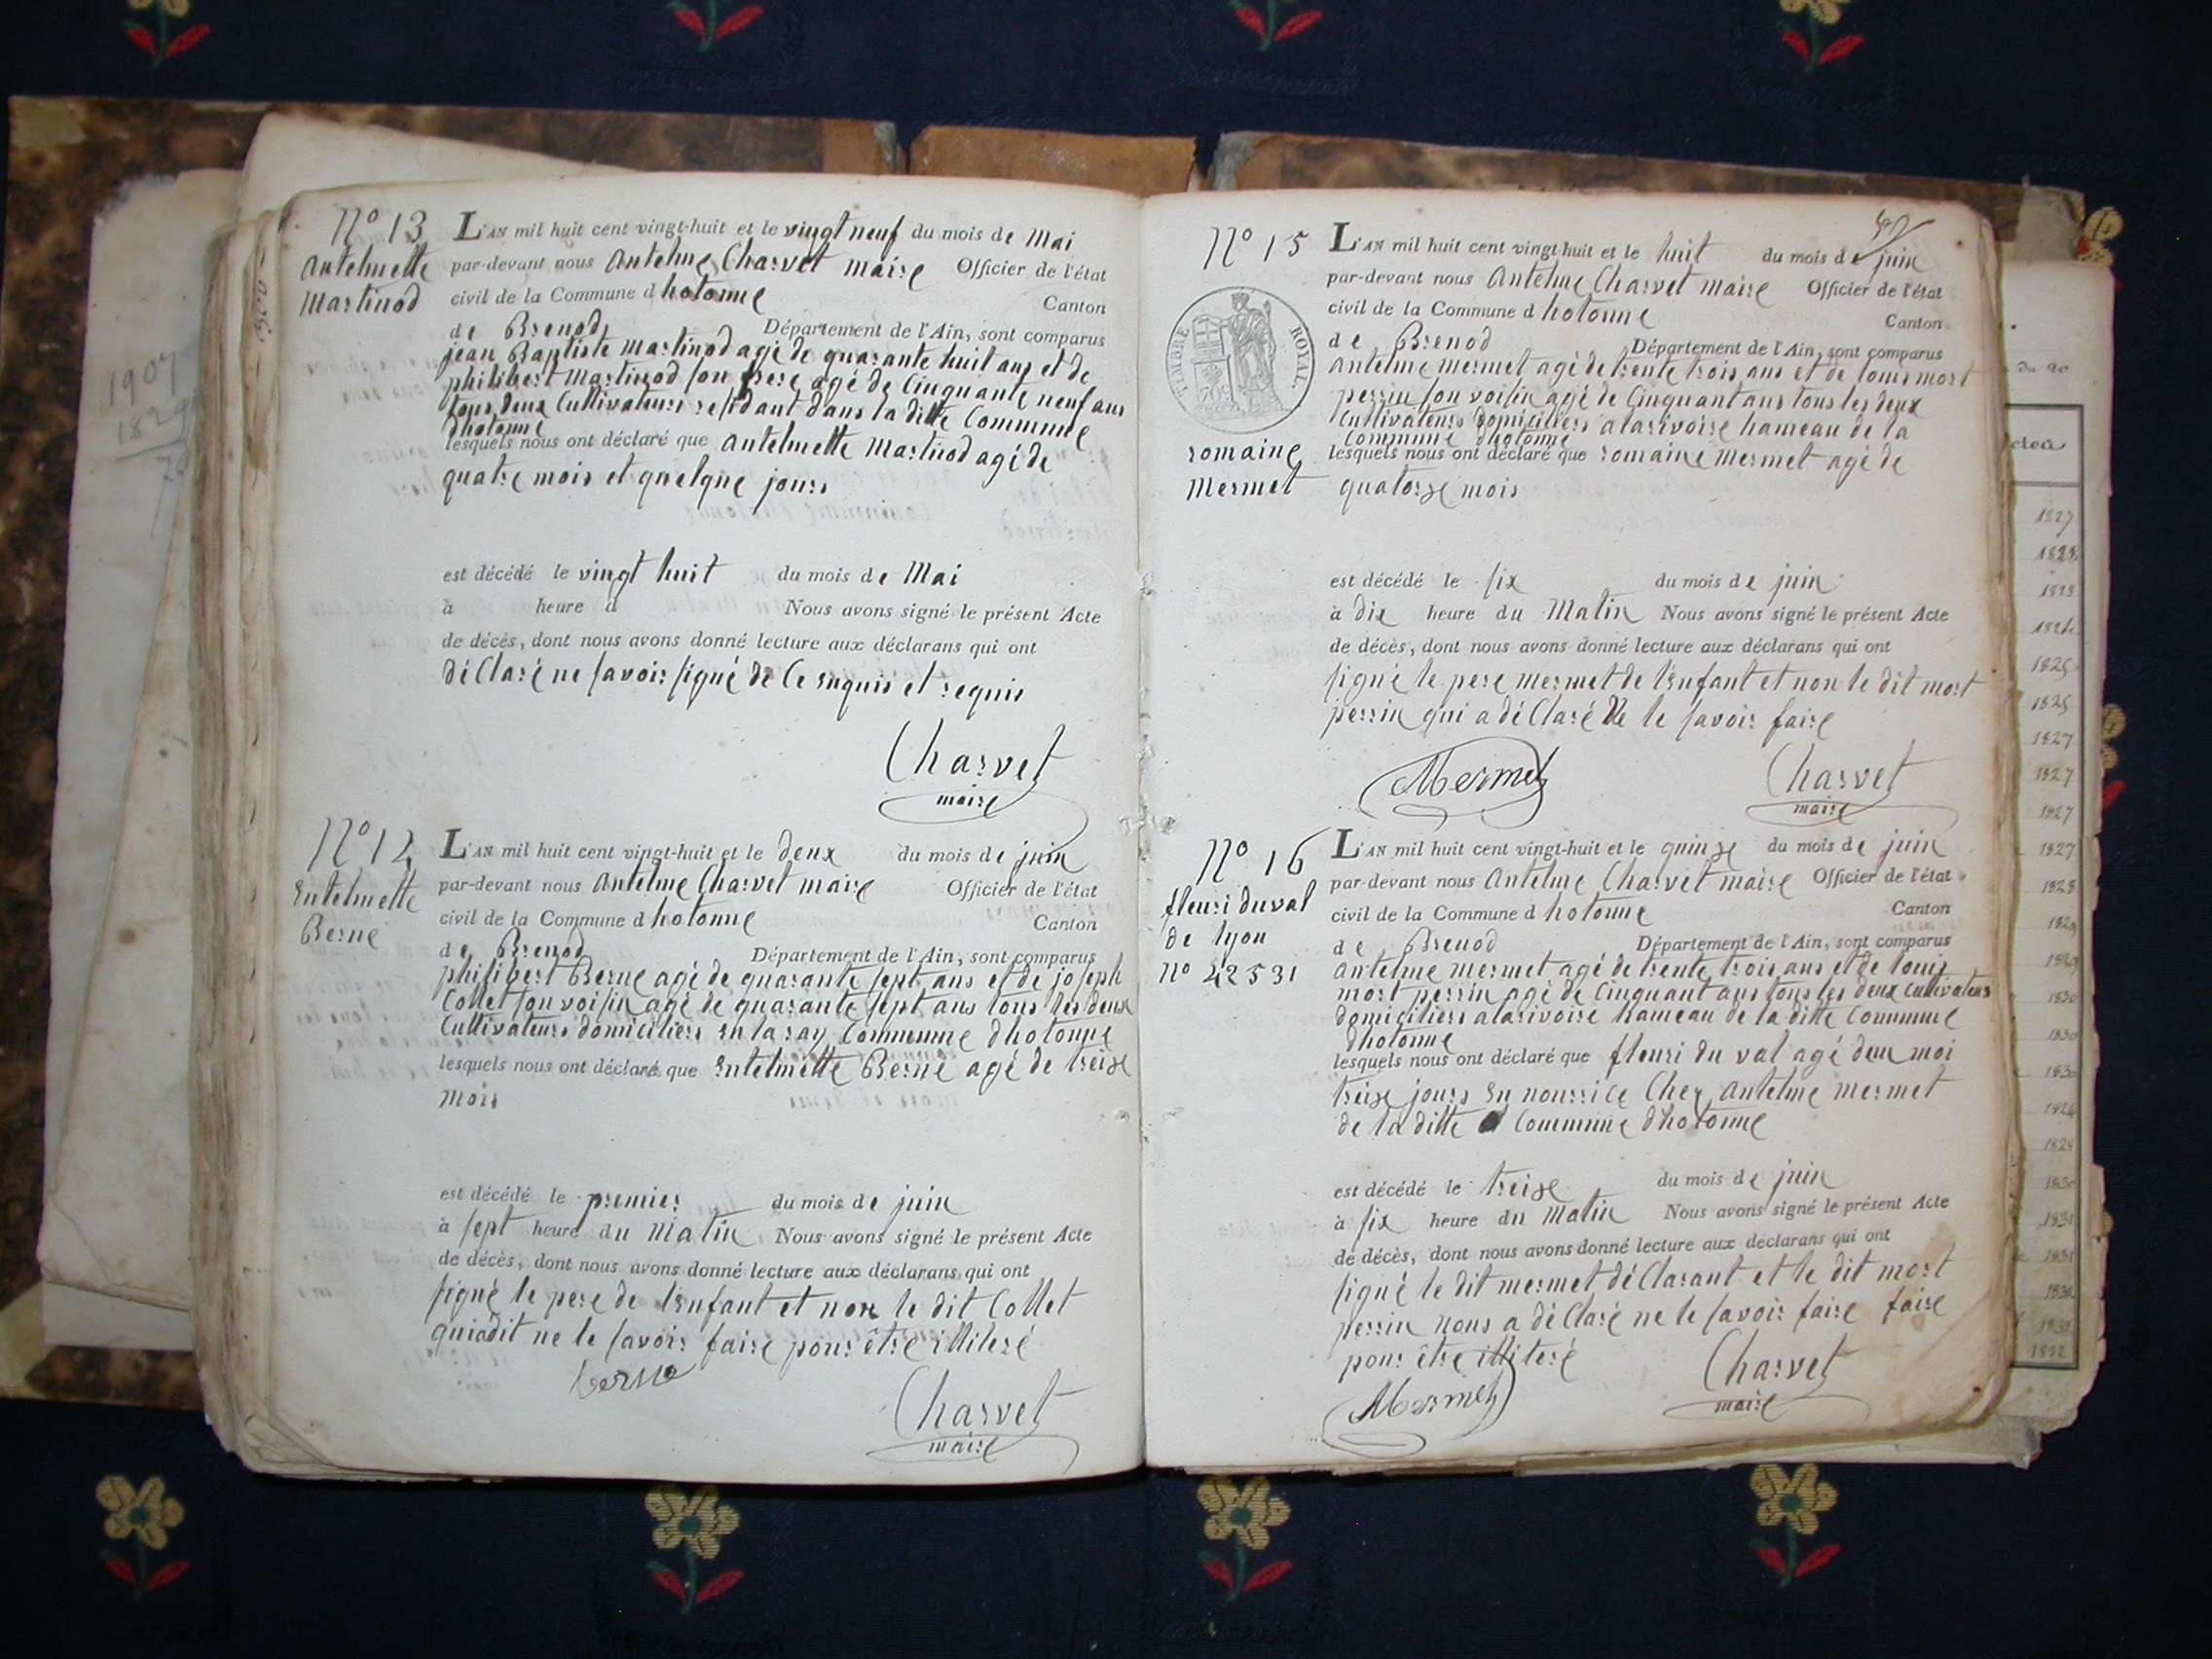 N° 13
Antelmette
Martinod
L'AN mil huit cent vingt-huit et le vingt neuf du mois de Mai
par-devant nous Antelme Charvet maire Officier de l'état
civil de la Commune d hotonne Canton
de Brenod Département de l'Ain, sont comparus
jean Baptiste Martinod agé de quarante huit ans et de
philibert Martinod son frere agé de Cinquante neuf ans
tous deux Cultivateurs residant dans la ditte Commune
dhotonne
lesquels nous ont déclaré que Antelmette Martinod agé de
quatre mois et quelque jours
est décédé le vingt huit du mois de Mai
à heure d Nous avons signé le présent Acte
de décès, dont nous avons donné lecture aux déclarans qui ont
déClaré ne savoir signé de Ce enquis et requis
Charvet
maire
N° 14
Entelmette
Berne
L'AN mil huit cent vingt-huit et le deux du mois de juin
par-devant nous Antelme Charvet maire Officier de l'état
civil de la Commune d hotonne Canton
de Brenod Département de l'Ain, sont comparus
philibert Berne agé de quarante sept ans et de joseph
Collet son voisin agé de quarante sept ans tous les deux
Cultivateurs domiciliers en la ray Commune dhotonne
lesquels nous ont déclaré que Entelmette Berne agé de treise
mois
est décédé le premier du mois de juin
à sept heure du Matin Nous avons signé le présent Acte
de décès, dont nous avons donné lecture aux déclarans qui ont
signé le pere de lenfant et non le dit Collet
qui adit ne le savoir faire pour être illiteré
berne
Charvet
maire
N° 15
TIMBRE ROYAL
romaine
Mermet
L'AN mil huit cent vingt-huit et le huit du mois de juin
par-devant nous Antelme Charvet maire Officier de l'état
civil de la Commune d hotonne Canton
de Brenod Département de l'Ain, sont comparus
antelme mermet agé de trente trois ans et de louis mort
perrin son voisin agé de Cinquant ans tous les deux
Cultivateurs domiciliers alarivoire hameau de la
Commune dhotonne
lesquels nous ont déclaré que romaine Mermet agé de
quatorse mois
est décédé le six du mois de juin
à dix heure du Matin Nous avons signé le présent Acte
de décès, dont nous avons donné lecture aux déclarans qui ont
signé le pere mermet de lenfant et non le dit mort
perrin qui a déClaré Ne le savoir faire
Mermet
Charvet
maire
N° 16
fleuri duval
de lyon
n° 42531
L'AN mil huit cent vingt-huit et le quinse du mois de juin
par-devant nous Antelme Charvet maire Officier de l'état
civil de la Commune d hotonne Canton
de Brenod Département de l'Ain, sont comparus
antelme mermet agé de trente trois ans et de louis
mort perrin agé de Cinquant ans tous les deux cultivateurs
domiciliers alarivoire hameau de la ditte Commune
dhotonne
lesquels nous ont déclaré que fleuri du val agé deux moi
treise jours en nourrice Chez Antelme mermet
de la ditte Commune dhotonne
est décédé le treise du mois de juin
à six heure du Matin Nous avons signé le présent Acte
de décès, dont nous avons donné lecture aux déclarans qui ont
signé le dit mermet déClarant et le dit mort
perrin nous a déClaré ne le savoir faire faire
pour être illiteré
Mermet
Charvet
maire
1907
1829
1827
1825
1825
1827
1827
1827
1827
1828
1830
1830